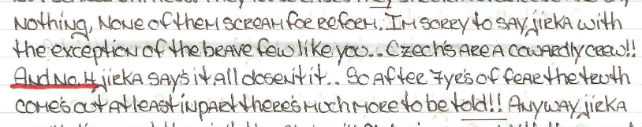 Nothing, None of them scream for reform.. I'm sorry to say, jirka with
the exception of the brave few like you.. Czechs are a cowardly crew!!
And No. 4 jirka says it all dosent it.. So after 7yrs of fear the truth
comes out at least in part there's much more to be told!! Anyway jirka